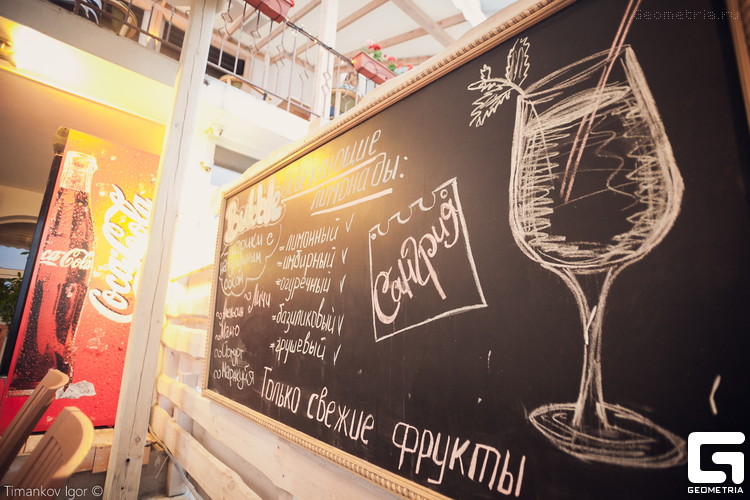 Geometria.ru
Coca-Cola
Coca-Cola
лимонады:
Bubble
шарики с
соком
~Личи
~Манго
~Йогурт
~Маракуйя
=лимонный ✓
=имбирный ✓
=огуречный ✓
=базиликовый ✓
=грушевый ✓
Сангрия
Только свежие фрукты
Timankov Igor ©
GEOMETRIA